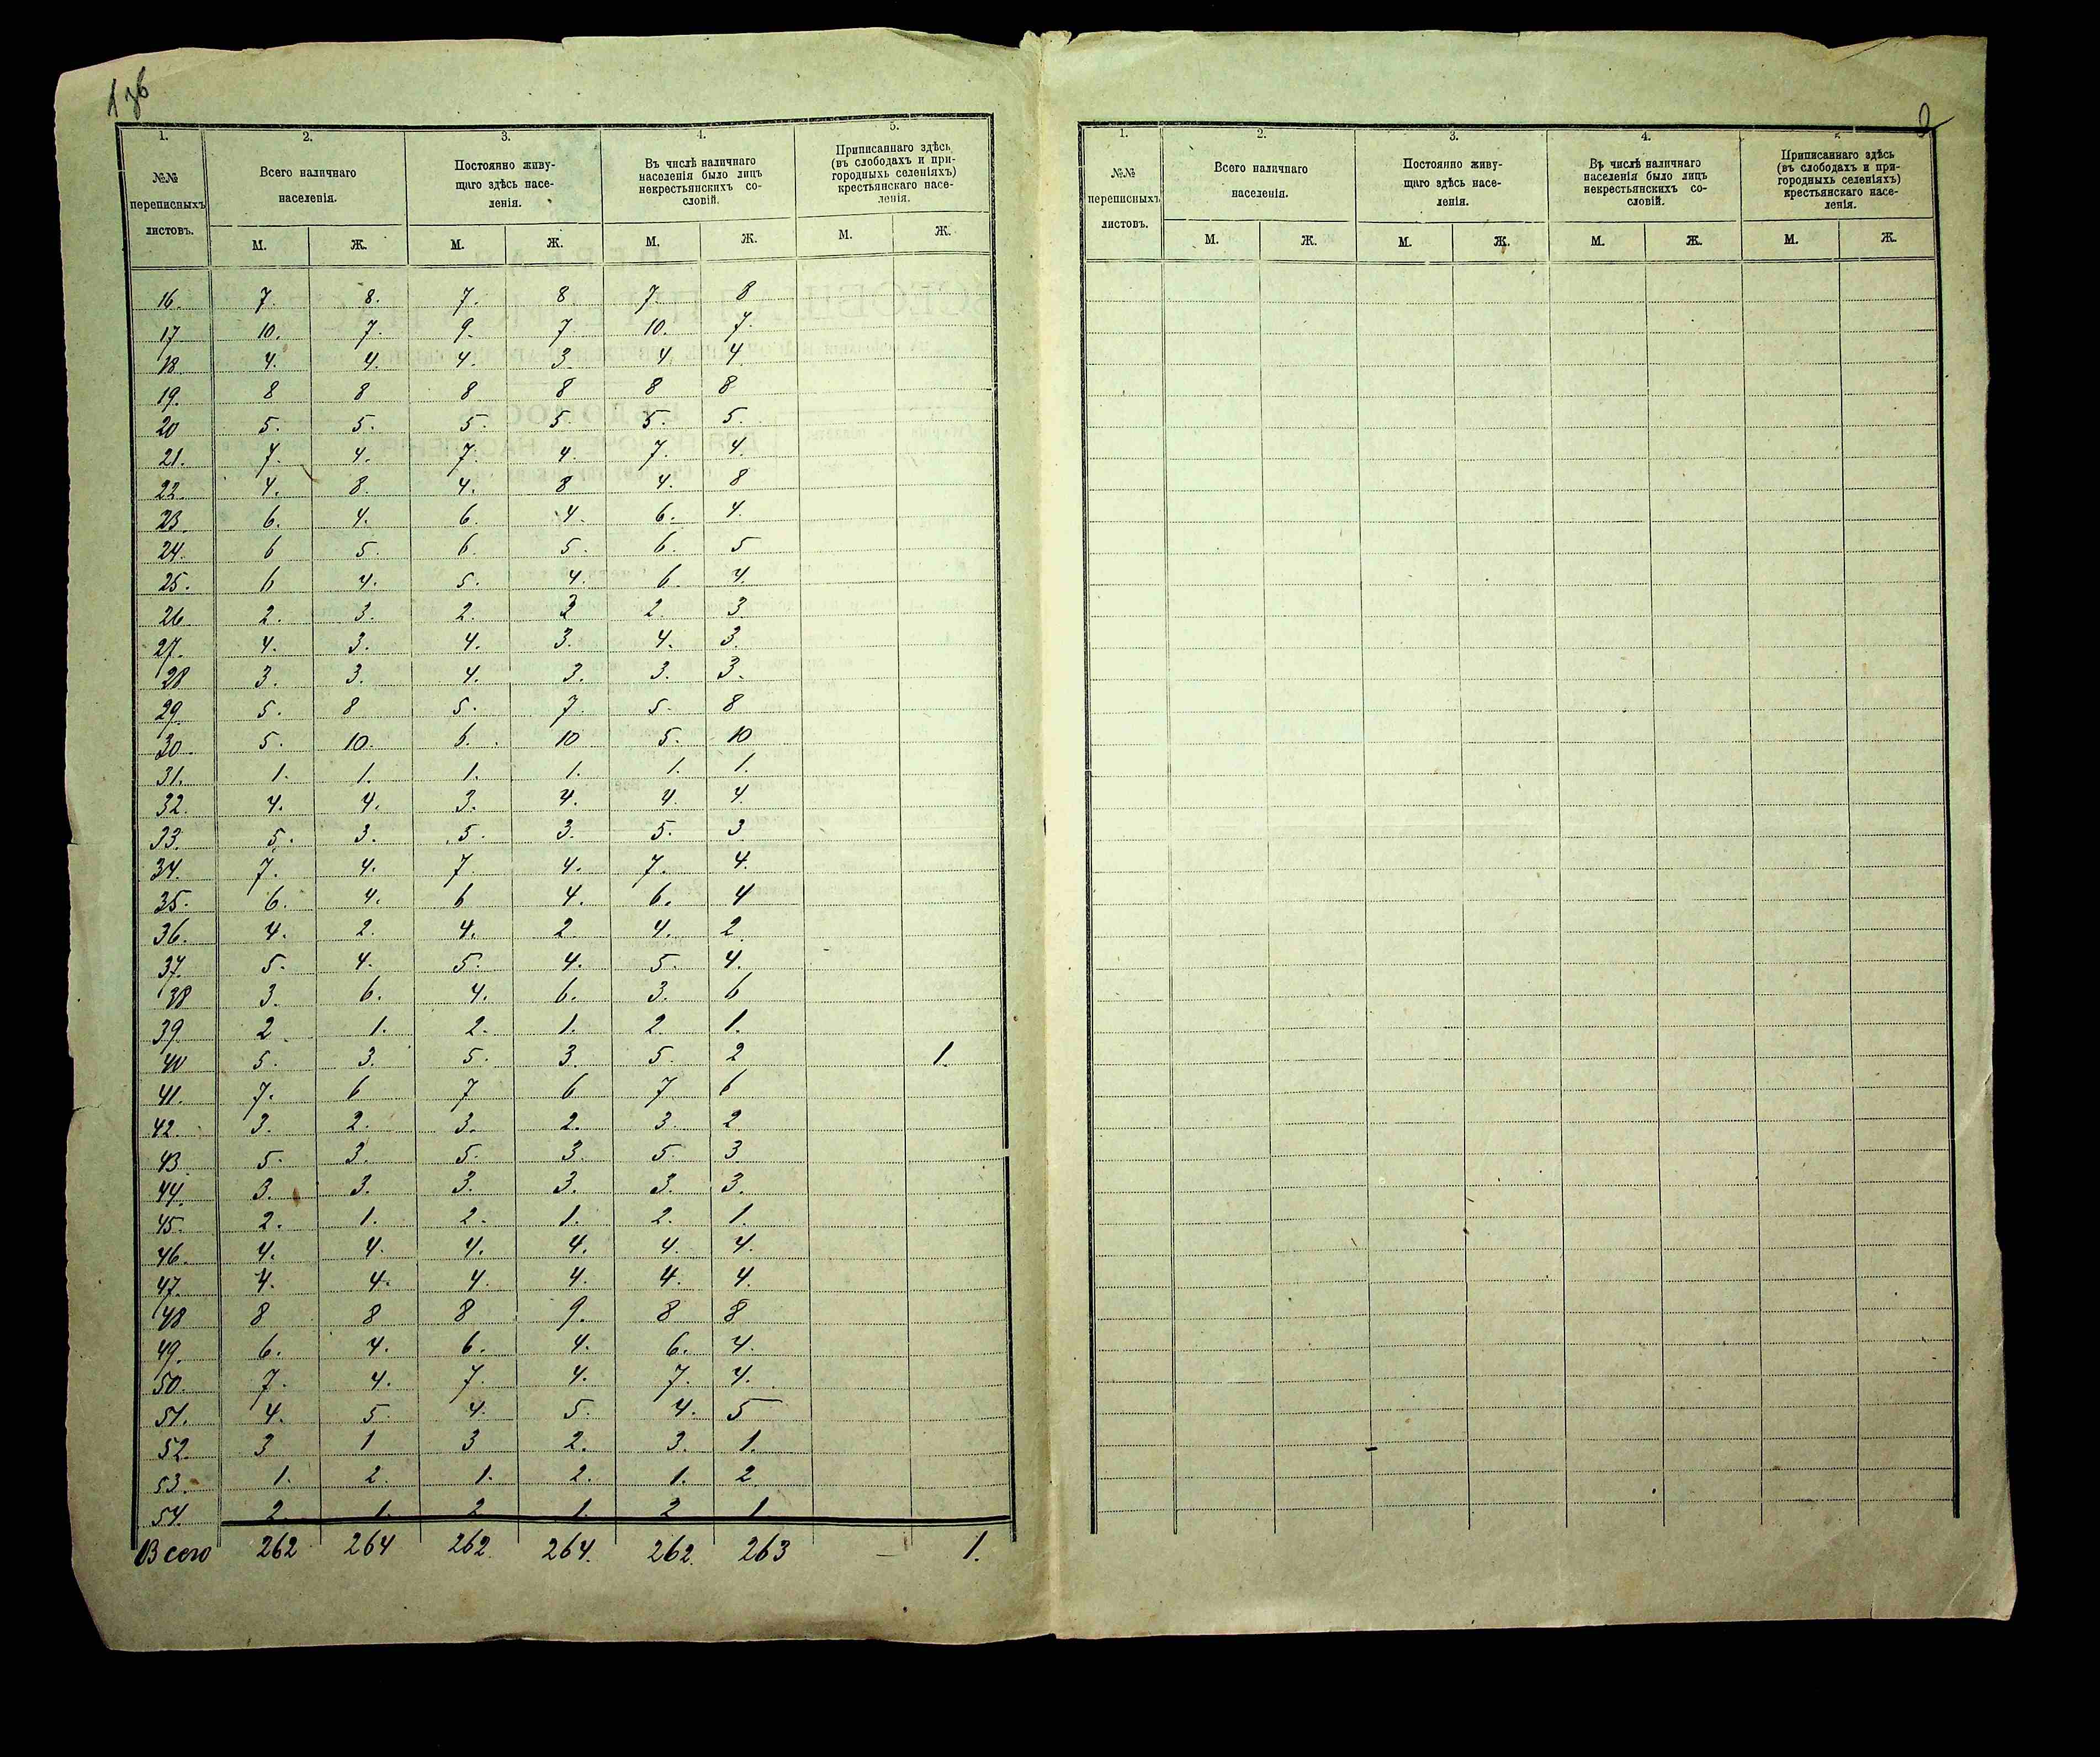 1. 2. 3. 4. 5.
№№ переписныхъ листовъ. Всего наличнаго населенія. Постоянно живущаго здѣсь населенія. Въ числѣ наличнаго населенія было лицъ некрестьянскихъ сословій. Приписаннаго здѣсь (въ слободахъ и пригородныхъ селеніяхъ) крестьянскаго населенія.
М. Ж. М. Ж. М. Ж. М. Ж.
16. 7. 8. 7. 8. 7. 8
17 10. 7. 9. 7 10. 7.
18 4. 4. 4. 3. 4 4.
19. 8 8 8 8 8 8
20 5. 5. 5. 5. 5. 5.
21. 7. 4. 7. 4. 7. 4.
22. 4. 8. 4. 8 4. 8
23 6. 4. 6. 4. 6. 4.
24. 6 5. 6. 5. 6. 5
25. 6 4. 5. 4. 6. 4.
26 2. 3. 2. 3 2. 3
27. 4. 3. 4. 3. 4. 3.
28 3. 3. 4. 3. 3. 3.
29. 5. 8 5. 7. 5. 8
30. 5. 10. 5. 10 5. 10
31. 1. 1. 1. 1. 1. 1.
32. 4. 4. 3. 4. 4. 4.
33. 5. 3. 5. 3. 5. 3
34. 7. 4. 7. 4. 7. 4.
35. 6. 4. 6 4. 6. 4
36. 4. 2. 4. 2. 4. 2.
37. 5. 4. 5. 4. 5. 4.
38 3. 6. 4. 6. 3. 6
39. 2 1. 2. 1. 2. 1.
40 5. 3. 5. 3. 5. 2 1.
41. 7. 6 7 6 7 6
42. 3. 2. 3. 2. 3. 2
43. 5. 3. 5. 3. 5. 3
44. 3. 3. 3. 3. 3. 3.
45. 2. 1. 2. 1. 2. 1.
46. 4. 4. 4. 4. 4. 4.
47. 4. 4. 4 4. 4. 4.
48 8 8 8 9. 8 8
49. 6. 4. 6. 4. 6. 4.
50. 7. 4. 7. 4. 7. 4.
51. 4. 5. 4. 5. 4. 5
52. 3 1 3 2. 3. 1.
53. 1. 2. 1. 2. 1. 2
54. 2. 1. 2 1. 2 1
Всего 262 264 262. 264. 262. 263 — 1.
1. 2. 3. 4. 5
№№ переписныхъ листовъ. Всего наличнаго населенія. Постоянно живущаго здѣсь населенія. Въ числѣ наличнаго населенія было лицъ некрестьянскихъ сословій. Приписаннаго здѣсь (въ слободахъ и пригородныхъ селеніяхъ) крестьянскаго населенія.
М. Ж. М. Ж. М. Ж. М. Ж.